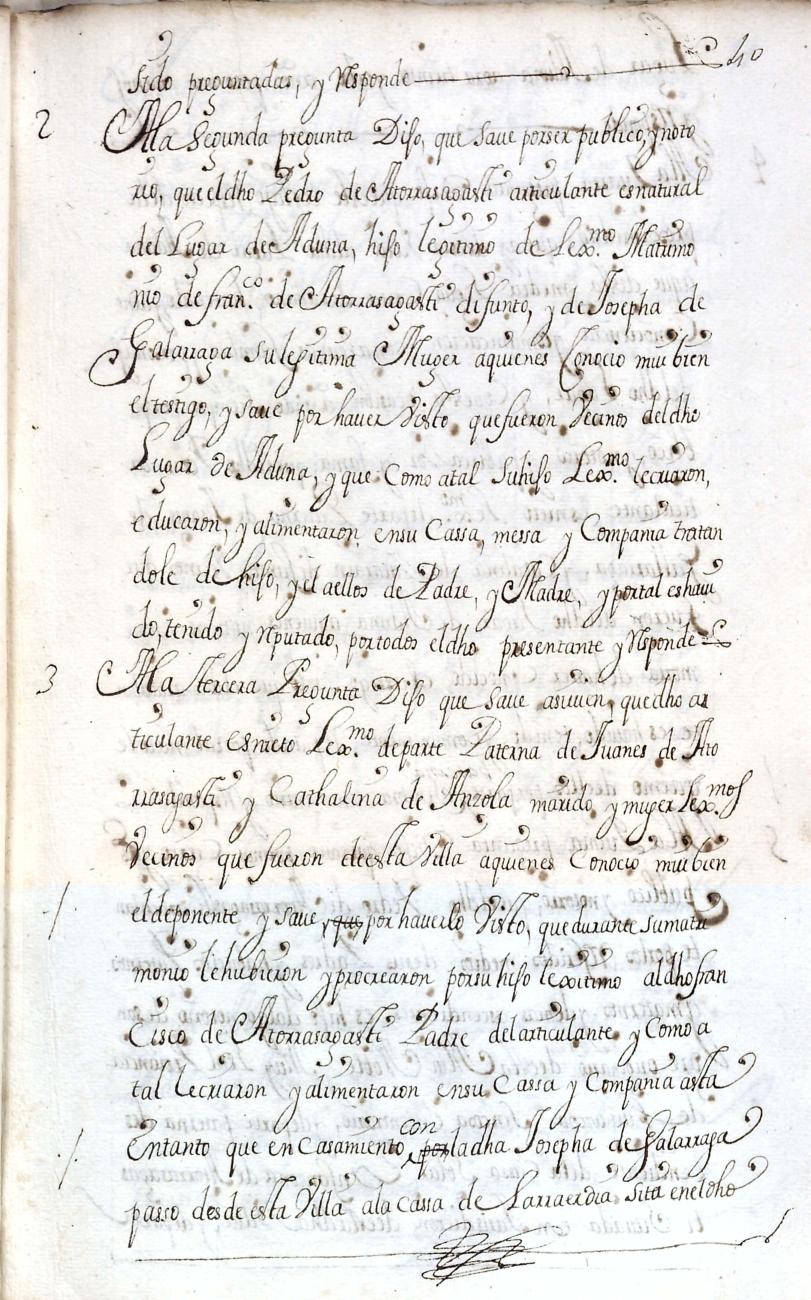 40
sido preguntadas, y Responde
2 A la Segunda pregunta Dijo, que save por ser publico, y noto
rio, que el dho Pedro de Atorrasagasti articulante es natural
del Lugar de Aduna, hijo legitimo de Lex.mo Matrimo
nio de fran.co de Atorrasagasti difunto, y de Josepha de
Galarraga su legitima Muger aquienes Conocio mui bien
el testigo, y save por haver Visto que fueron Vecinos del dho
Lugar de Aduna, y que Como atal Su hijo Lex.mo le criaron,
educaron, y alimentaron en su Cassa, messa y Compania tratan
dole de hijo, y el aellos de Padre, y Madre, y por tal es havi
do, tenido y Reputado, por todos el dho presentante y Responde
3 A la tercera Pregunta Dijo que save asivien, que dho ar
ticulante es nieto Lex.mo de parte Paterna de Juanes de Ato
rrasagasti y Cathalina de Anzola marido y muger Lex.mos
Vecinos que fueron de esta Villa aquienes Conocio mui bien
el deponente y save, que, por haverlo Visto, que durante su matri
monio le hubieron y procrearon por su hijo lexitimo al dho fran
Cisco de Atorrasagasti Padre del articulante y Como a
tal le criaron y alimentaron en su Cassa y Compania asta
Entanto que en Casamiento por con la dha Josepha de Galarraga
passo desde esta Villa ala Cassa de Larraerdia sita en el dho